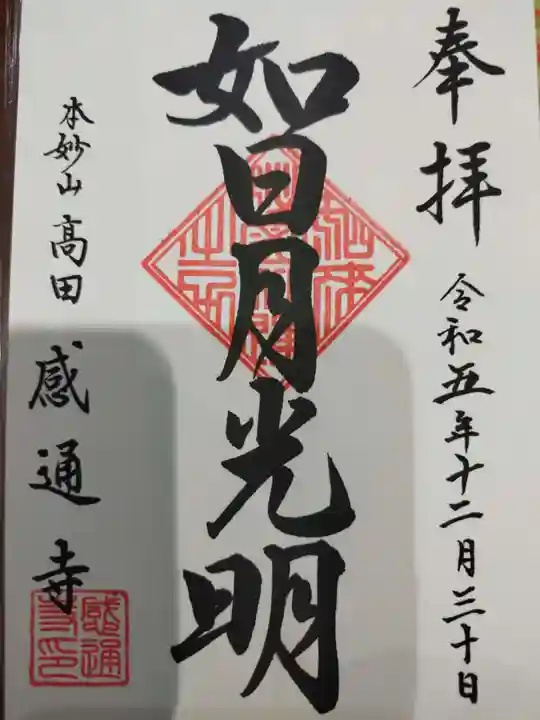 奉拝
令和五年十二月三十日
如日月光明
本妙山 高田 感通寺
感通
寺印